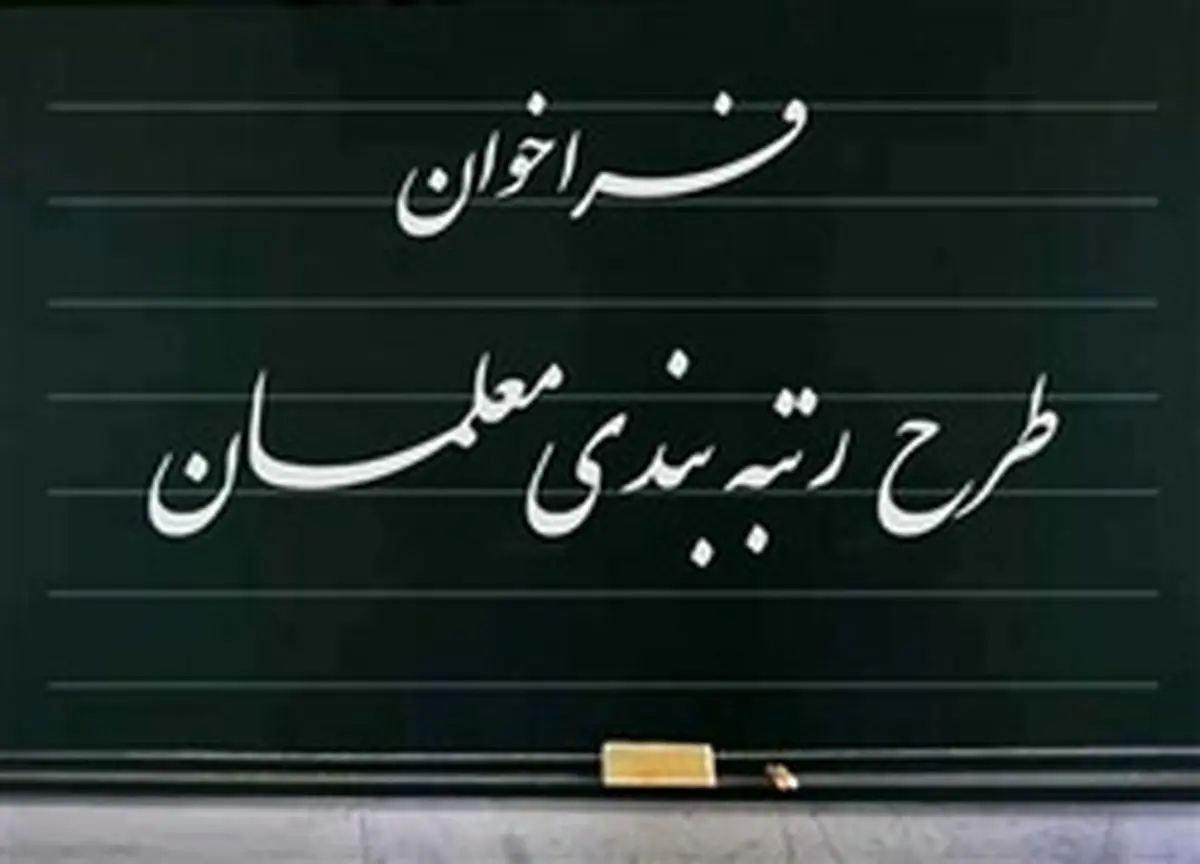 فراخوان
طرح رتبه بندی معلمان